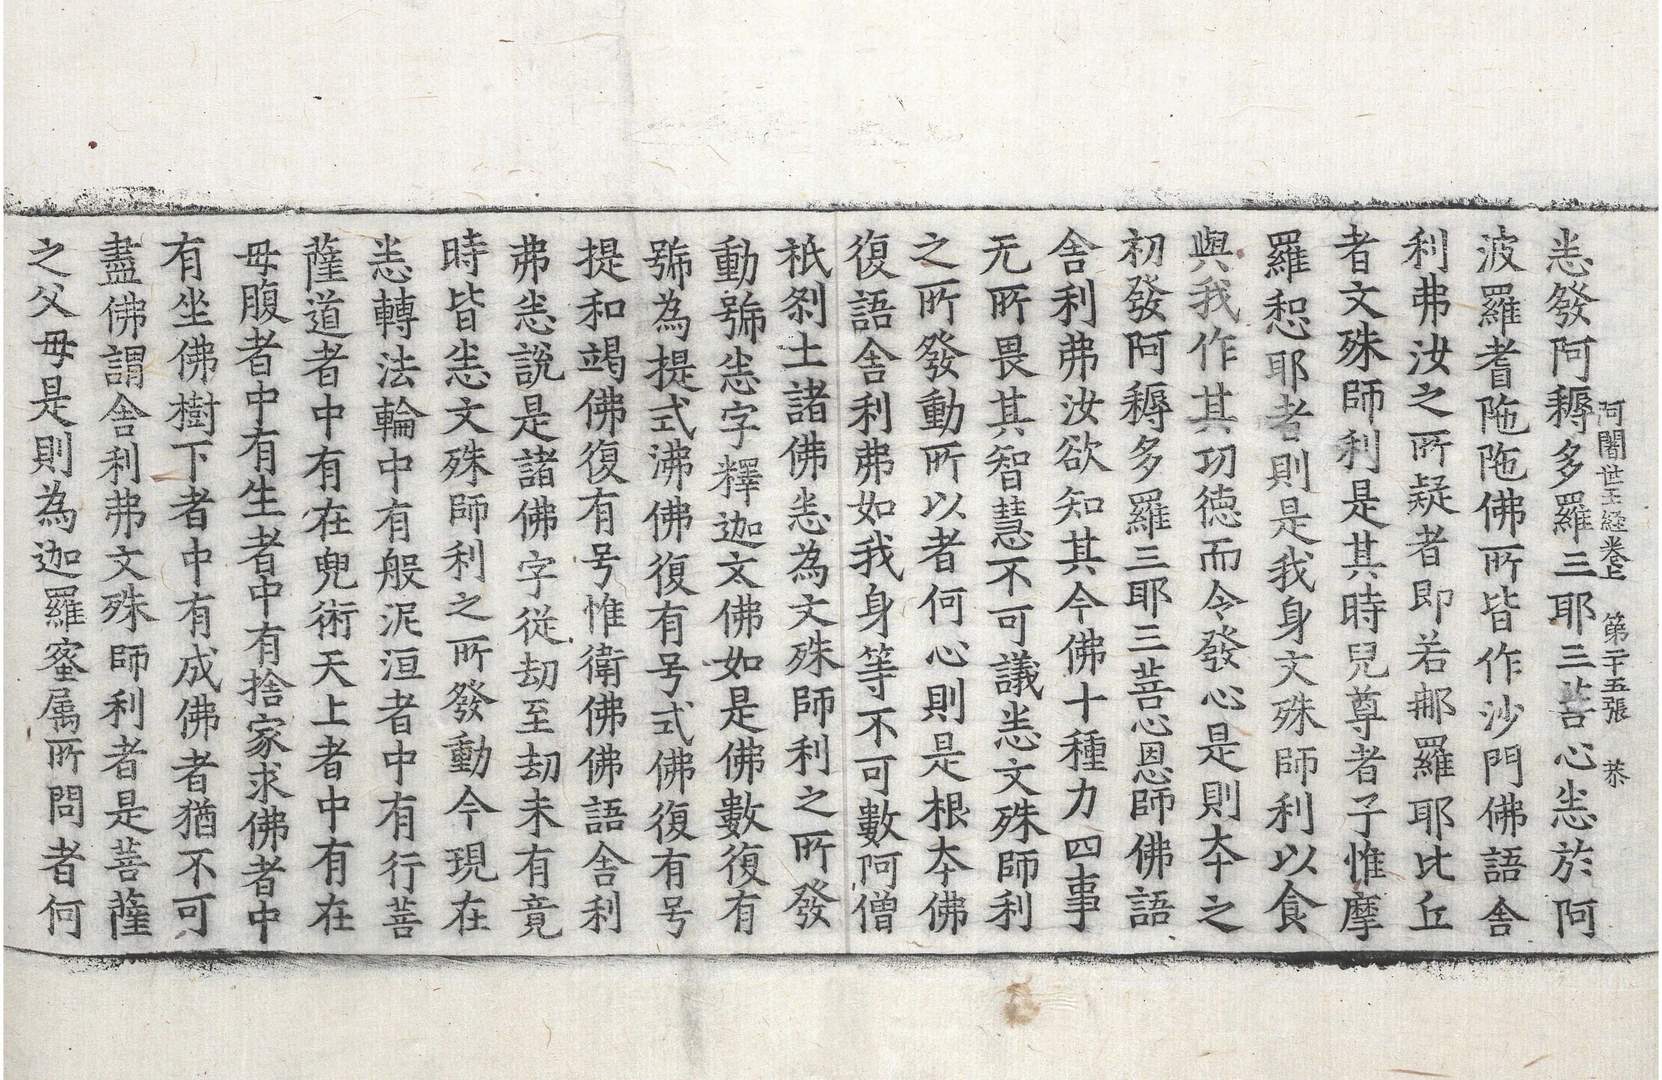 阿闍世王經卷上 第二十五張 恭
恙發阿耨多羅三耶三菩心恙於阿
波羅耆陁陁佛所皆作沙門佛語舍
利弗汝之所疑者即若郍羅耶比丘
者文殊師利是其時兒尊者子惟摩
羅惒耶者則是我身文殊師利以食
與我作其功德而令發心是則夲之
初發阿耨多羅三耶三菩心恩師佛語
舍利弗汝欲知其今佛十種力四事
无所畏其智慧不可議恙文殊師利
之所發動所以者何心則是根夲佛
復語舍利弗如我身等不可數阿僧
祇刹土諸佛恙為文殊師利之所發
動號恙字釋迦文佛如是佛數復有
號為提式沸佛復有号式佛復有号
提和竭佛復有号惟衛佛佛語舍利
弗恙說是諸佛字從劫至劫未有竟
時皆恙文殊師利之所發動今現在
恙轉法輪中有般泥洹者中有行菩
薩道者中有在兜術天上者中有在
母腹者中有生者中有捨家求佛者中
有坐佛樹下者中有成佛者猶不可
盡佛謂舍利弗文殊師利者是菩薩
之父母是則為迦羅蜜属所問者何